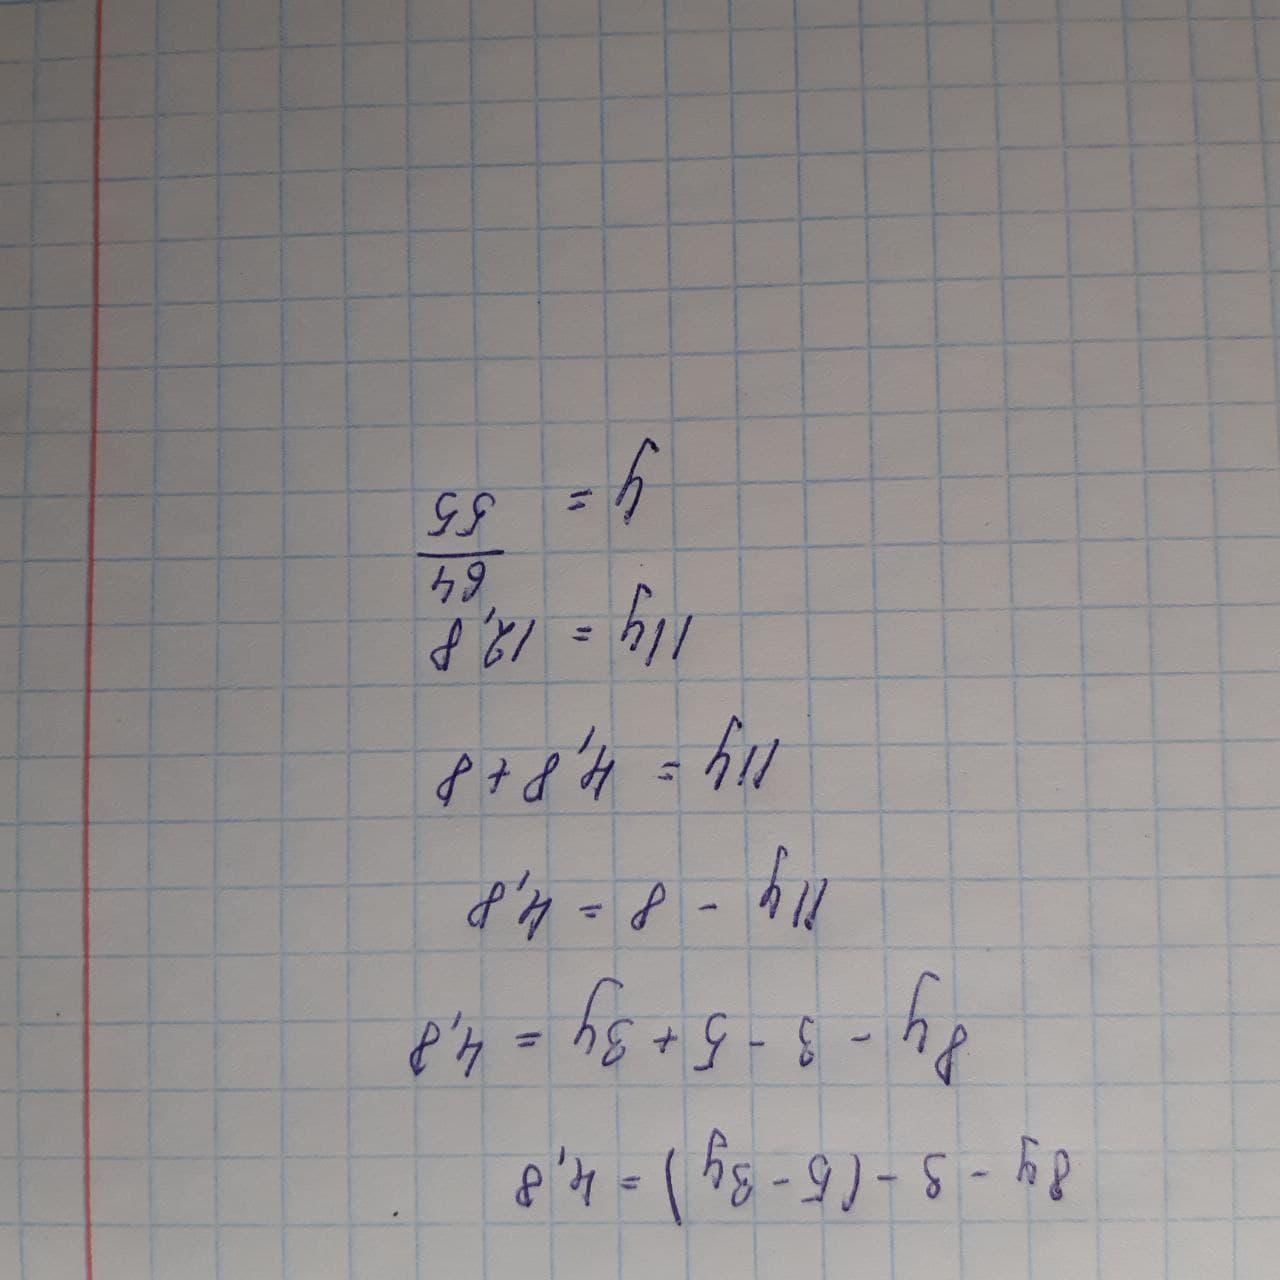 8y - 3 - (5 - 3y) = 4,8
8y - 3 - 5 + 3y = 4,8
11y - 8 = 4,8
11y = 4,8 + 8
11y = 12,8
y = 64/55